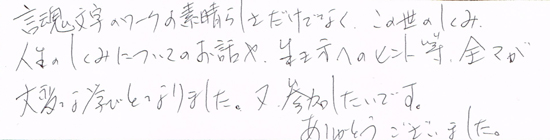 言魂文字のワークの素晴らしさだけでなく、この世のしくみ、
人生のしくみについてのお話や、生き方へのヒント等、全てが
大変な学びとなりました。又、参加したいです。
ありがとうございました。